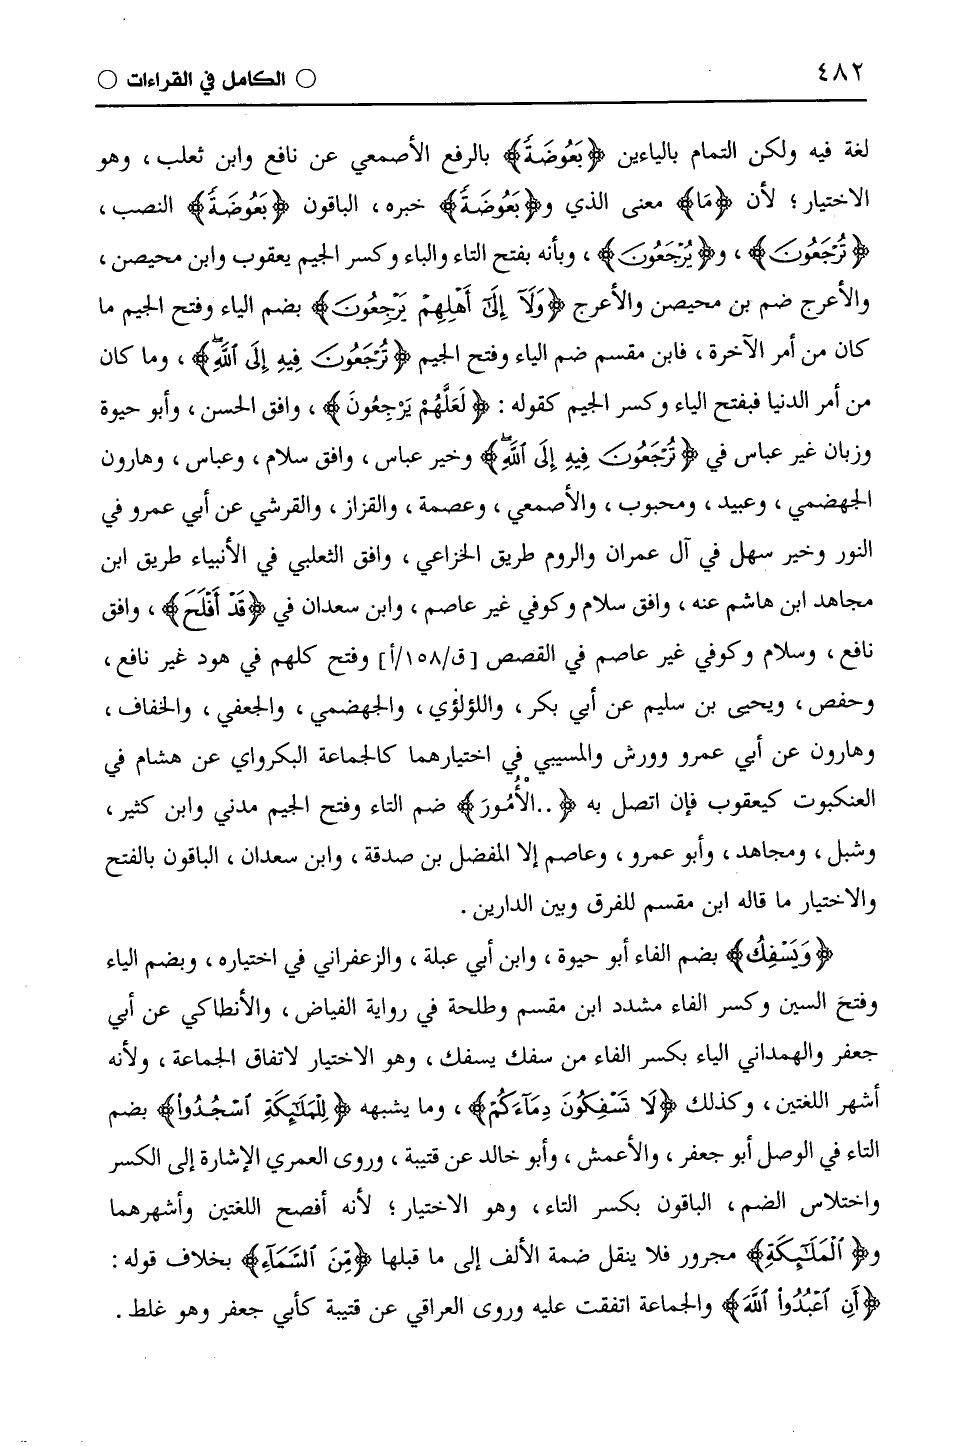 ٤٨٢
○ الكامل في القراءات ○
لغة فيه ولكن التمام بالياءين ﴿بَعُوضَةً﴾ بالرفع الأصمعي عن نافع وابن ثعلب، وهو
الاختيار؛ لأن ﴿مَا﴾ معنى الذي و﴿بَعُوضَةً﴾ خبره، الباقون ﴿بَعُوضَةً﴾ النصب،
﴿تُرْجَعُونَ﴾، و﴿يُرْجَعُونَ﴾، وبأنه بفتح التاء والياء وكسر الجيم يعقوب وابن محيصن،
والأعرج ضم بن محيصن والأعرج ﴿وَلَآ إِلَىٰٓ أَهْلِهِمْ يَرْجِعُونَ﴾ بضم الياء وفتح الجيم ما
كان من أمر الآخرة، فابن مقسم ضم الياء وفتح الجيم ﴿تُرْجَعُونَ فِيهِ إِلَى ٱللَّهِ﴾، وما كان
من أمر الدنيا فبفتح الياء وكسر الجيم كقوله: ﴿لَعَلَّهُمْ يَرْجِعُونَ﴾، وافق الحسن، وأبو حيوة
وزبان غير عباس في ﴿تُرْجَعُونَ فِيهِ إِلَى ٱللَّهِ﴾ وخير عباس، وافق سلام، وعباس، وهارون
الجهضمي، وعبيد، ومحبوب، والأصمعي، وعصمة، والقزاز، والقرشي عن أبي عمرو في
النور وخير سهل في آل عمران والروم طريق الخزاعي، وافق الثعلبي في الأنبياء طريق ابن
مجاهد ابن هاشم عنه، وافق سلام وكوفي غير عاصم، وابن سعدان في ﴿قَدْ أَفْلَحَ﴾، وافق
نافع، وسلام وكوفي غير عاصم في القصص [ق/١٥٨/أ] وفتح كلهم في هود غير نافع،
وحفص، ويحيى بن سليم عن أبي بكر، واللؤلؤي، والجهضمي، والجعفي، والخفاف،
وهارون عن أبي عمرو وورش والمسيبي في اختيارهما كالجماعة البكرواي عن هشام في
العنكبوت كيعقوب فإن اتصل به ﴿..الْأُمُورَ﴾ ضم التاء وفتح الجيم مدني وابن كثير،
وشبل، ومجاهد، وأبو عمرو، وعاصم إلا المفضل بن صدقة، وابن سعدان، الباقون بالفتح
والاختيار ما قاله ابن مقسم للفرق وبين الدارين.
﴿وَيَسْفِكُ﴾ بضم الفاء أبو حيوة، وابن أبي عبلة، والزعفراني في اختياره، وبضم الياء
وفتح السين وكسر الفاء مشدد ابن مقسم وطلحة في رواية الفياض، والأنطاكي عن أبي
جعفر والهمداني الياء بكسر الفاء من سفك يسفك، وهو الاختيار لاتفاق الجماعة، ولأنه
أشهر اللغتين، وكذلك ﴿لَا تَسْفِكُونَ دِمَآءَكُمْ﴾، وما يشبهه ﴿لِلْمَلَٰٓئِكَةِ ٱسْجُدُوا۟﴾ بضم
التاء في الوصل أبو جعفر، والأعمش، وأبو خالد عن قتيبة، وروى العمري الإشارة إلى الكسر
واختلاس الضم، الباقون بكسر التاء، وهو الاختيار؛ لأنه أفصح اللغتين وأشهرهما
و﴿ٱلْمَلَٰٓئِكَةِ﴾ مجرور فلا ينقل ضمة الألف إلى ما قبلها ﴿مِّنَ ٱلسَّمَآءِ﴾ بخلاف قوله:
﴿أَنِ ٱعْبُدُوا۟ ٱللَّهَ﴾ والجماعة اتفقت عليه وروى العراقي عن قتيبة كأبي جعفر وهو غلط.